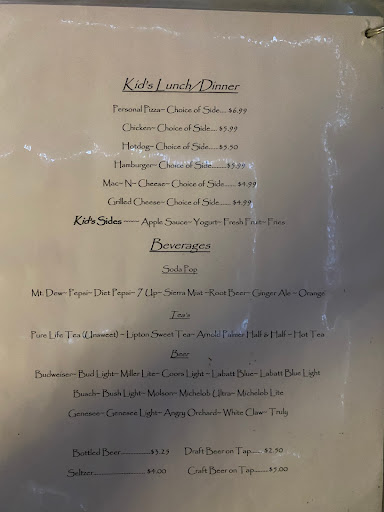 Kid's Lunch/Dinner
Personal Pizza~ Choice of Side.... $6.99
Chicken~ Choice of Side.... $5.99
Hotdog~ Choice of Side..... $5.50
Hamburger~ Choice of Side........$5.99
Mac~ N~ Cheese~ Choice of Side...... $4.99
Grilled Cheese~ Choice of Side...... $4.99
Kid's Sides ~~~~ Apple Sauce~ Yogurt~ Fresh Fruit~ Fries
Beverages
Soda Pop
Mt. Dew~ Pepsi~ Diet Pepsi~ 7 Up~ Sierra Mist ~Root Beer~ Ginger Ale ~ Orange
Tea's
Pure Life Tea (Unsweet) ~ Lipton Sweet Tea~ Arnold Palmer Half & Half ~ Hot Tea
Beer
Budweiser~ Bud Light~ Miller Lite~ Coors Light ~ Labatt Blue~ Labatt Blue Light
Busch~ Bush Light~ Molson~ Michelob Ultra~ Michelob Lite
Genesee~ Genesee Light~ Angry Orchard~ White Claw~ Truly
Bottled Beer............$3.25 Draft Beer on Tap..... $2.50
Seltzer......................$4.00 Craft Beer on Tap.......$5.00